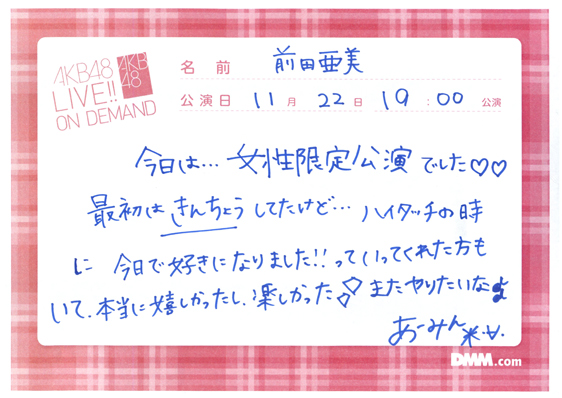 AKB48
LIVE!!
ON DEMAND
AKB
48
名前 前田亜美
公演日 11月22日 19:00公演
今日は…女性限定公演でした♡♡
最初はきんちょうしてたけど…ハイタッチの時
に 今日で好きになりました!!っていってくれた方も
いて、本当に嬉しかったし、楽しかった またやりたいな
あーみん
DMM.com